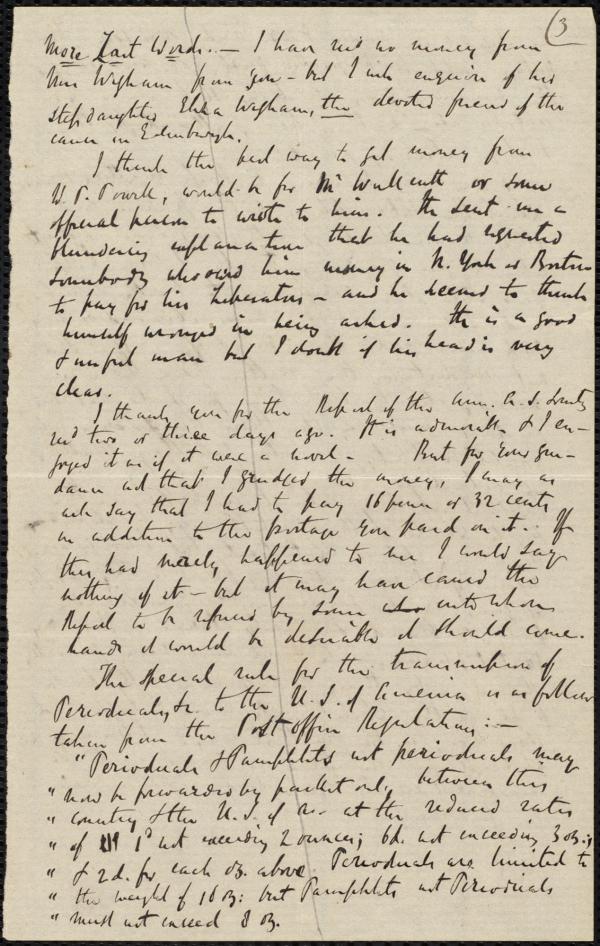 (3
More Last Words. — I have rec'd no money from
Mrs Wigham from you – but I will enquire of his
stepdaughter Eliza Wigham, the devoted friend of the
cause in Edinburgh.
I think the best way to get money from
W. P. Powell, would be for Mr Wallcutt or some
official person to write to him. He sent me a
blundering explanation that he had requested
somebody who owed him money in N. York or Boston
to pay for his Liberators – and he seemed to think
himself wronged in being asked. He is a good
& useful man but I doubt if his head is very
clear.
I thank you for the Report of the Am. A. S. Society
rec'd two or three days ago. It is admirable & I en-
joyed it as if it were a novel – But for your gui-
dance not that I grudged the money, I may as
well say that I had to pay 16 pence or 32 cents
in addition to the postage you paid on it. If
this had merely happened to me I would say
nothing of it – but it may have caused the
Report to be refused by some into whose
hands it would be desirable it should come.
The special rule for the transmission of
Periodicals &c to the U. S. of America is as follows
taken from the Post office Regulations: —
"Periodicals & Pamphlets not periodicals may
" now be forwarded by packet only between this
" country & the U. S. of Am. at the reduced rates
" of 1d not exceeding 2 ounces; 6d. not exceeding 3 oz.;
" & 2d. for each oz. above Periodicals are limited to
" the weight of 16 oz: but Pamphlets not Periodicals
" must not exceed 8 oz.